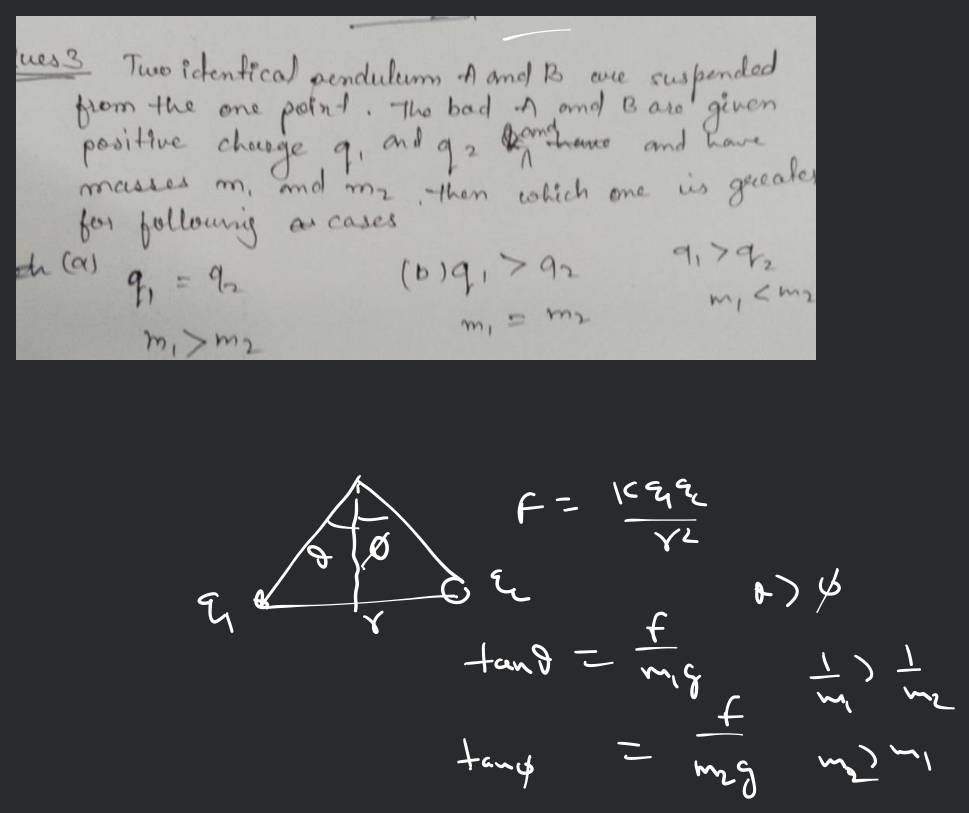 ues 3 Two identical pendulum A and B are suspended
from the one point. The bad A and B are given
positive charge q₁ and q₂ and have and have
masses m₁ and m₂, then which one is greater
for following as cases
(a) q₁ = q₂ (b) q₁ > q₂ q₁ > q₂
m₁ > m₂ m₁ = m₂ m₁ < m₂
F = K q₁ q₂ / r²
θ ϕ
q₁ r q₂ θ > ϕ
tan θ = f / m₁g 1/m₁ > 1/m₂
tan ϕ = f / m₂g m₂ > m₁